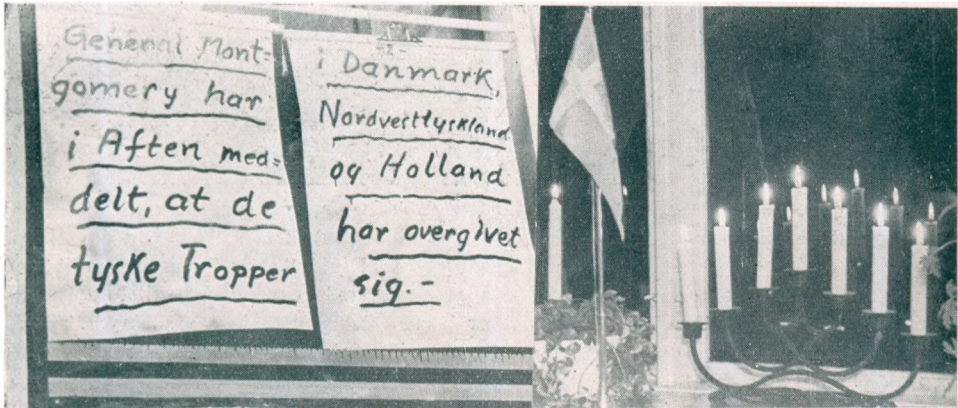 General Mont=
gomery har
i Aften med=
delt, at de
tyske Tropper
-2-
i Danmark,
Nordvesttyskland
og Holland
har overgivet
sig.-